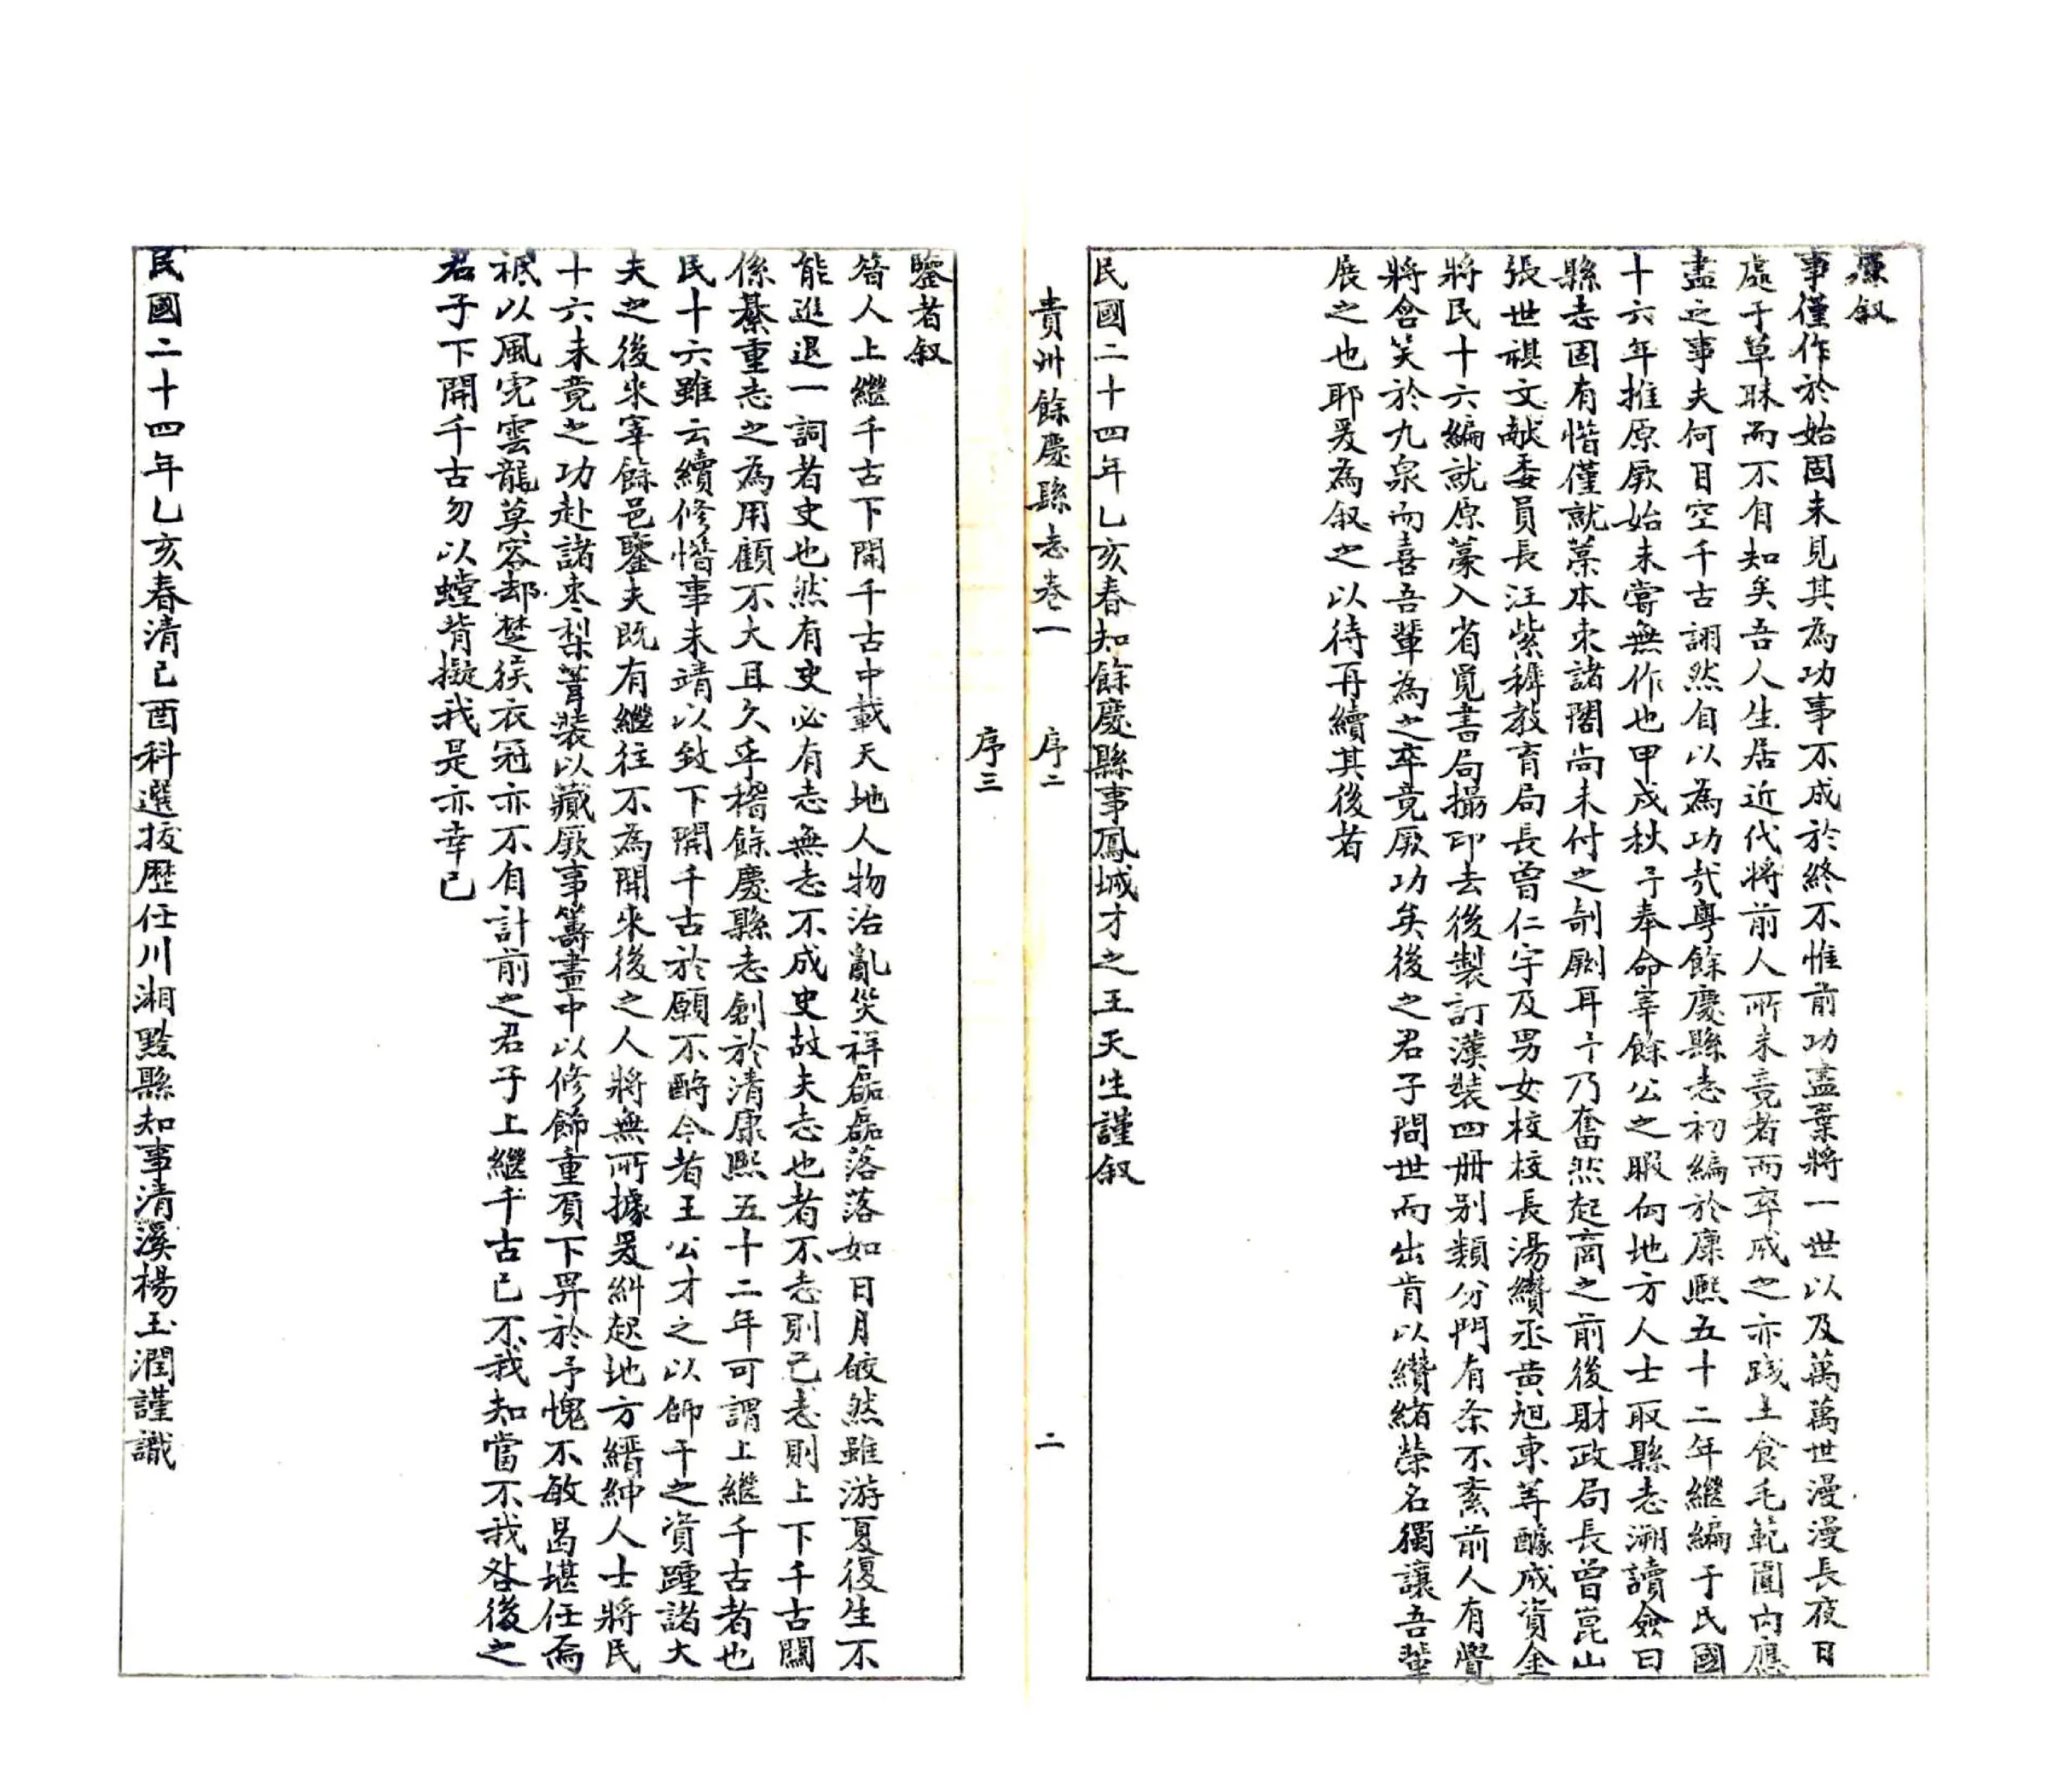 叙
事僅作於始固未見其為功事不成於終不惟前功盡棄將一世以及萬萬世漫漫長夜日
處于草昧而不自知矣吾人生居近代將前人所未竟者而卒成之亦踐土食毛範圍內應
盡之事夫何目空千古詡然自以為功哉粵餘慶縣志初編於康熙五十二年繼編于民國
十六年推原厥始未嘗無作也甲戌秋予奉命宰餘公之暇向地方人士取縣志溯讀僉曰
縣志固有惜僅就藁本束諸閣尚未付之剞劂耳予乃奮然起商之前後財政局長曾崑山
張世祺文献委員長汪紫穉教育局長曾仁宇及男女校校長湯纘丞黄旭東等醵成資金
將民十六編就原藁入省覓書局撮印去後製訂漢裝四冊别類分門有条不紊前人有覺
將含笑於九泉而喜吾輩為之卒竟厥功矣後之君子間世而出肯以纘緒榮名獨讓吾輩
展之也耶爰為叙之以待再續其後者
民國二十四年乚亥春知餘慶縣事鳳城才之王天生謹叙
貴州餘慶縣志卷一 序二 二
序三
鑒者叙
昝人上繼千古下開千古中載天地人物治亂災祥磊磊落落如日月皎然雖游夏復生不
能進退一詞者史也然有吏必有志無志不成史故夫志也者不志則已志則上下千古關
係綦重志之為用顧不大且久乎稽餘慶縣志創於清康熙五十二年可謂上繼千古者也
民十六雖云續修惜事未靖以致下開千古於願不酧今者王公才之以師干之資踵諸大
夫之後來宰餘邑鑒夫既有繼往不為開來後之人將無所據爰糾起地方縉紳人士將民
十六未竟之功赴諸枣梨葺裝以藏厥事籌畫中以修飾重頁下畀於予愧不敏曷堪任焉
祗以風虎雲龍莫容却楚猴衣冠亦不自計前之君子上繼千古已不我知當不我咎後之
君子下開千古勿以螳背擬我是亦幸已
民國二十四年乚亥春清己酉科選拔歷任川湘黔縣知事清溪楊玉潤謹識